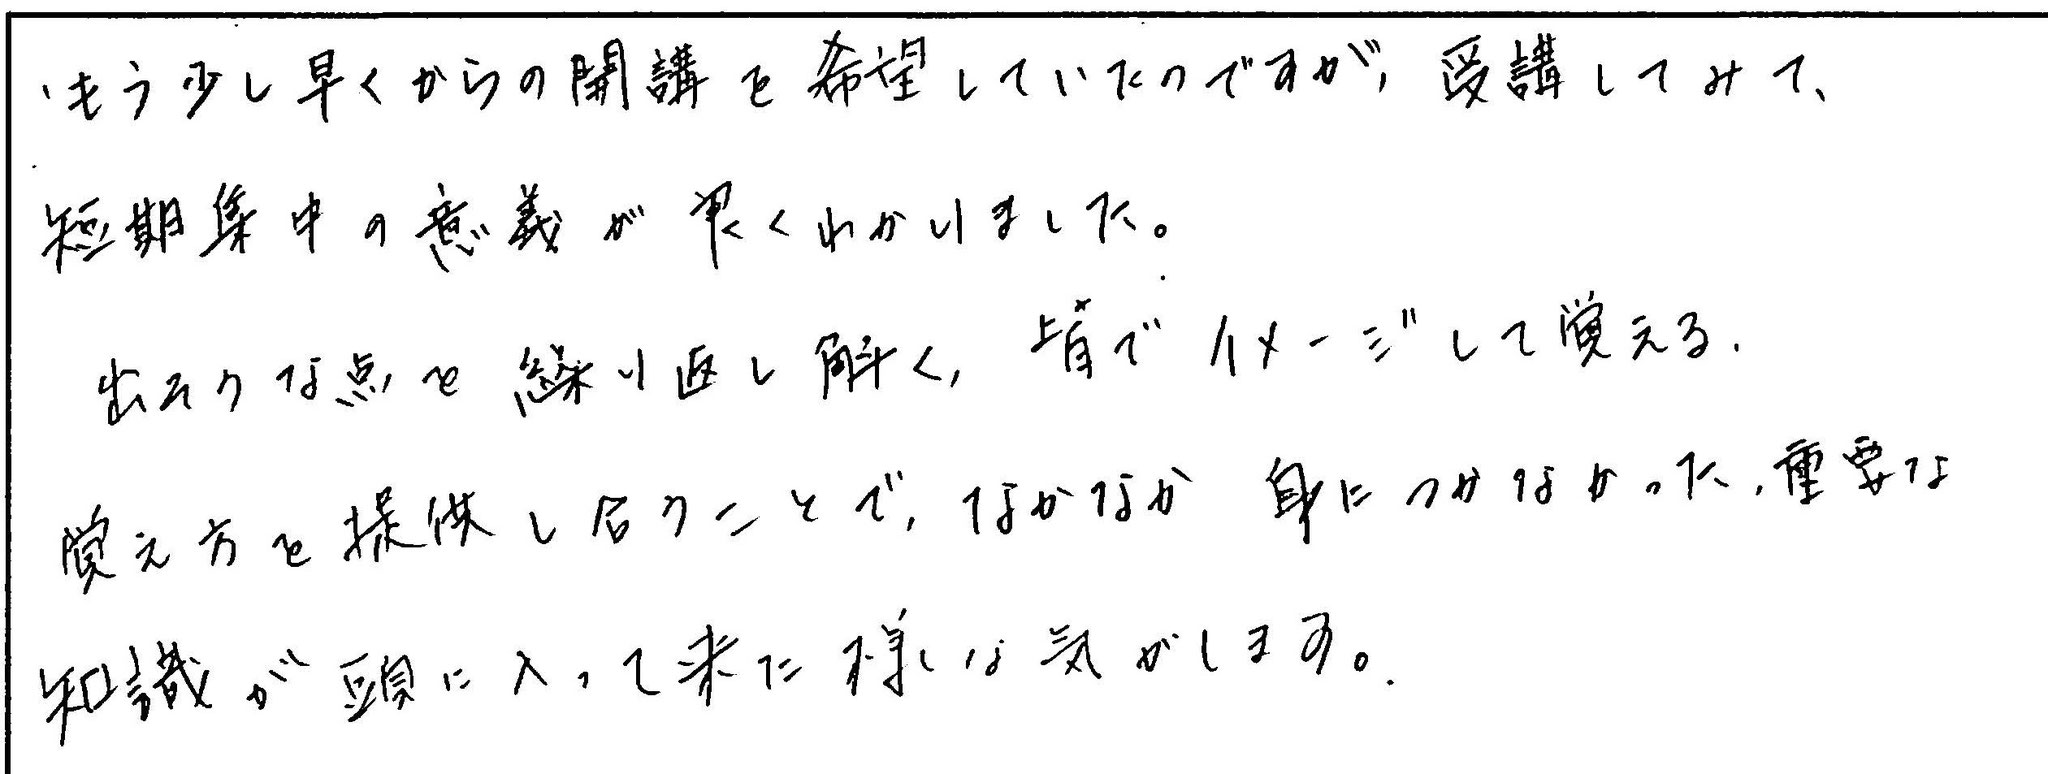 ・もう少し早くからの開講を希望していたのですが、受講してみて、
短期集中の意義が良くわかりました。
出そうな点を繰り返し解く、皆でイメージして覚える、
覚え方を提供し合うことで、なかなか身につかなかった、重要な
知識が頭に入って来た様な気がします。